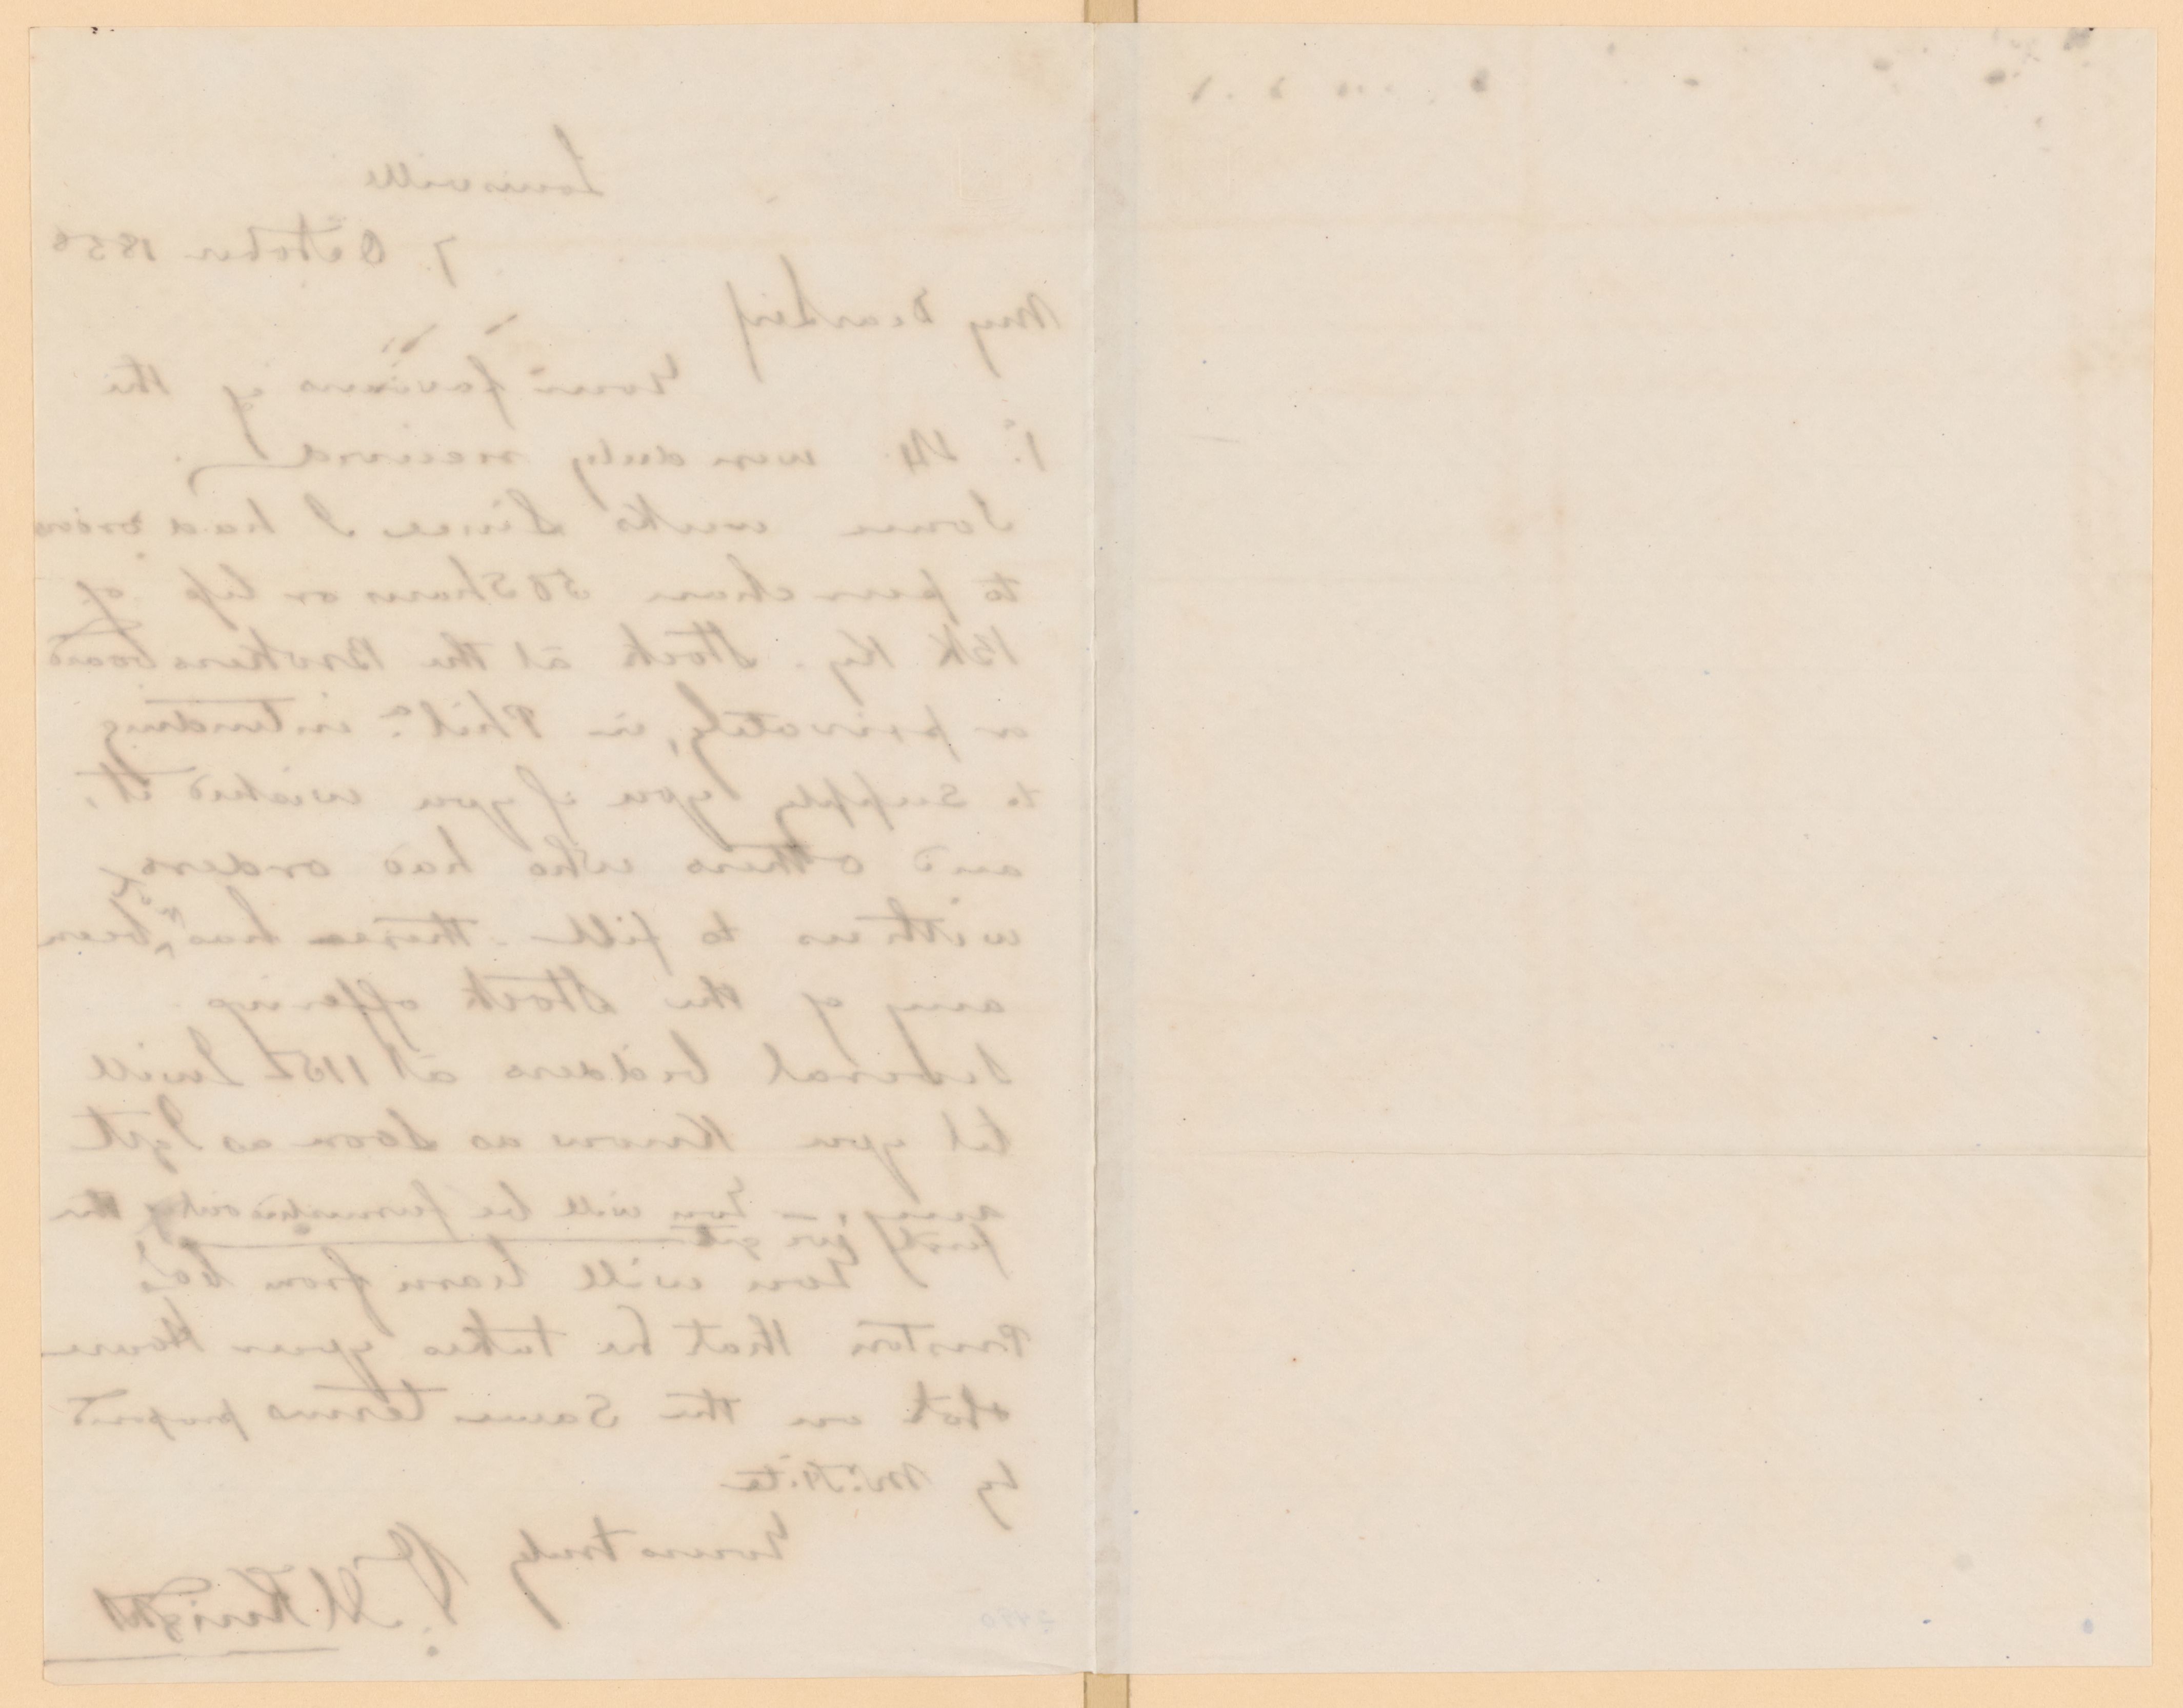 Louisville
7 October 1856
My Dear Sir
Your favours of the
1. & 4. were duly received.
Some weeks since I had orders
to purchase 50 Shares or less of
Bk Ky. Stock at the Brokers board
or privately, in Phila. intending
to supply you if you wished it,
and others who had orders
with us to fill - there has not been
any of the Stock offering
Several bidders at 115 I will
let you know as soon as I get
any, - You will be furnished out of the
first we get
You will learn from Col.
Preston that he takes your House
& lot on the same terms proposed
by Mr. Hite
Yours truly
V. McKnight